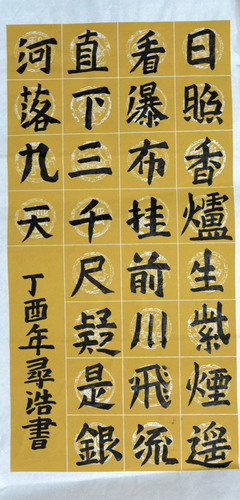 日照香爐生紫煙遥
看瀑布挂前川飛流
直下三千尺疑是銀
河落九天
丁酉年尋浩書